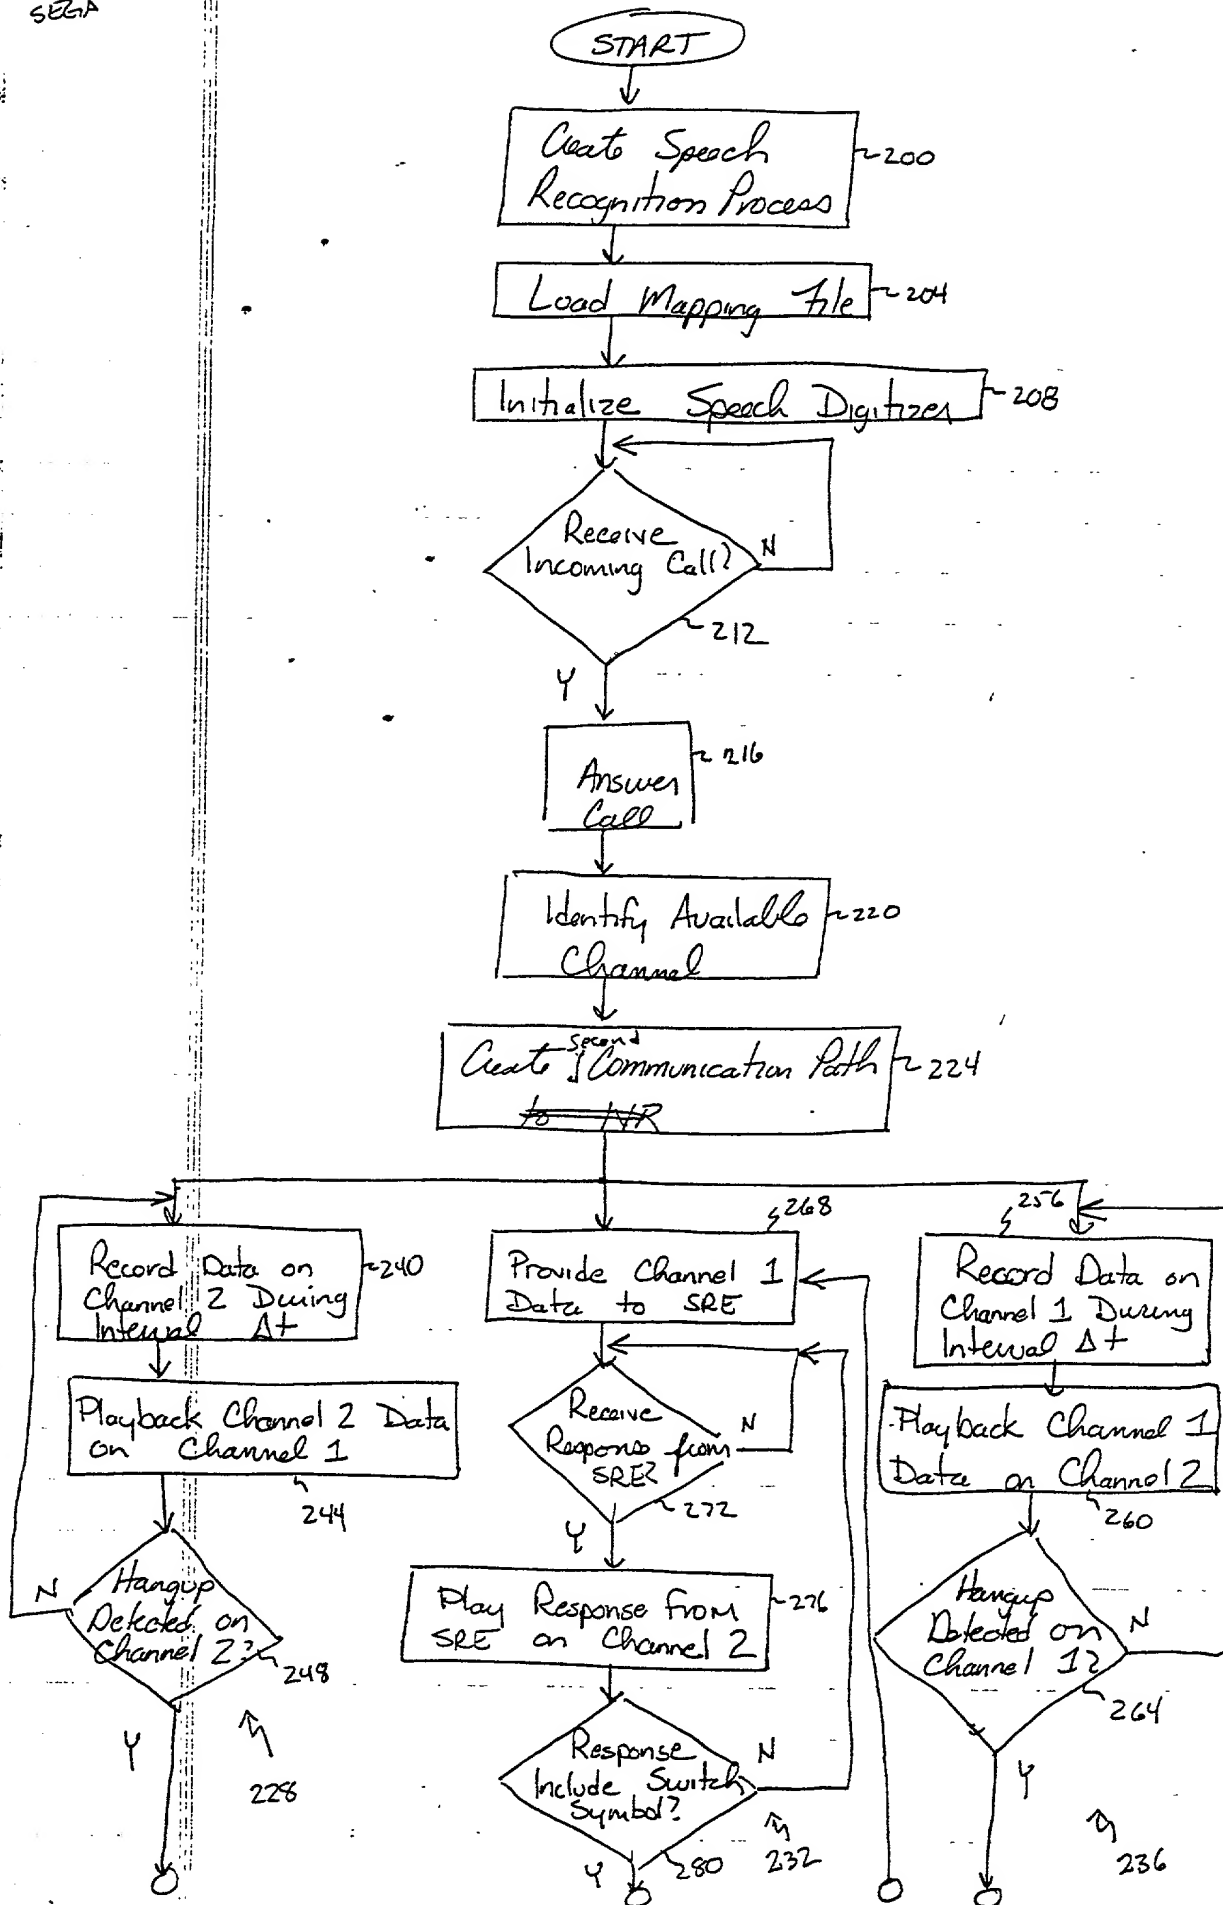 SEGA
START
Create Speech
Recognition Process
200
Load Mapping File
204
Initialize Speech Digitizer
208
Receive
Incoming Call?
N
212
Y
Answer
Call
216
Identify Available
Channel
220
second
Create Communication Path
to IVR
224
Record Data on
Channel 2 During
Interval Δt
240
Playback Channel 2 Data
on Channel 1
244
Hangup
Detected on
Channel 2?
N
248
Y
228
268
Provide Channel 1
Data to SRE
Receive
Response from
SRE?
N
272
Y
Play Response From
SRE on Channel 2
276
Response
Include Switch
Symbol?
N
280
Y
232
256
Record Data on
Channel 1 During
Interval Δt
Playback Channel 1
Data on Channel 2
260
Hangup
Detected on
Channel 1?
N
264
Y
236